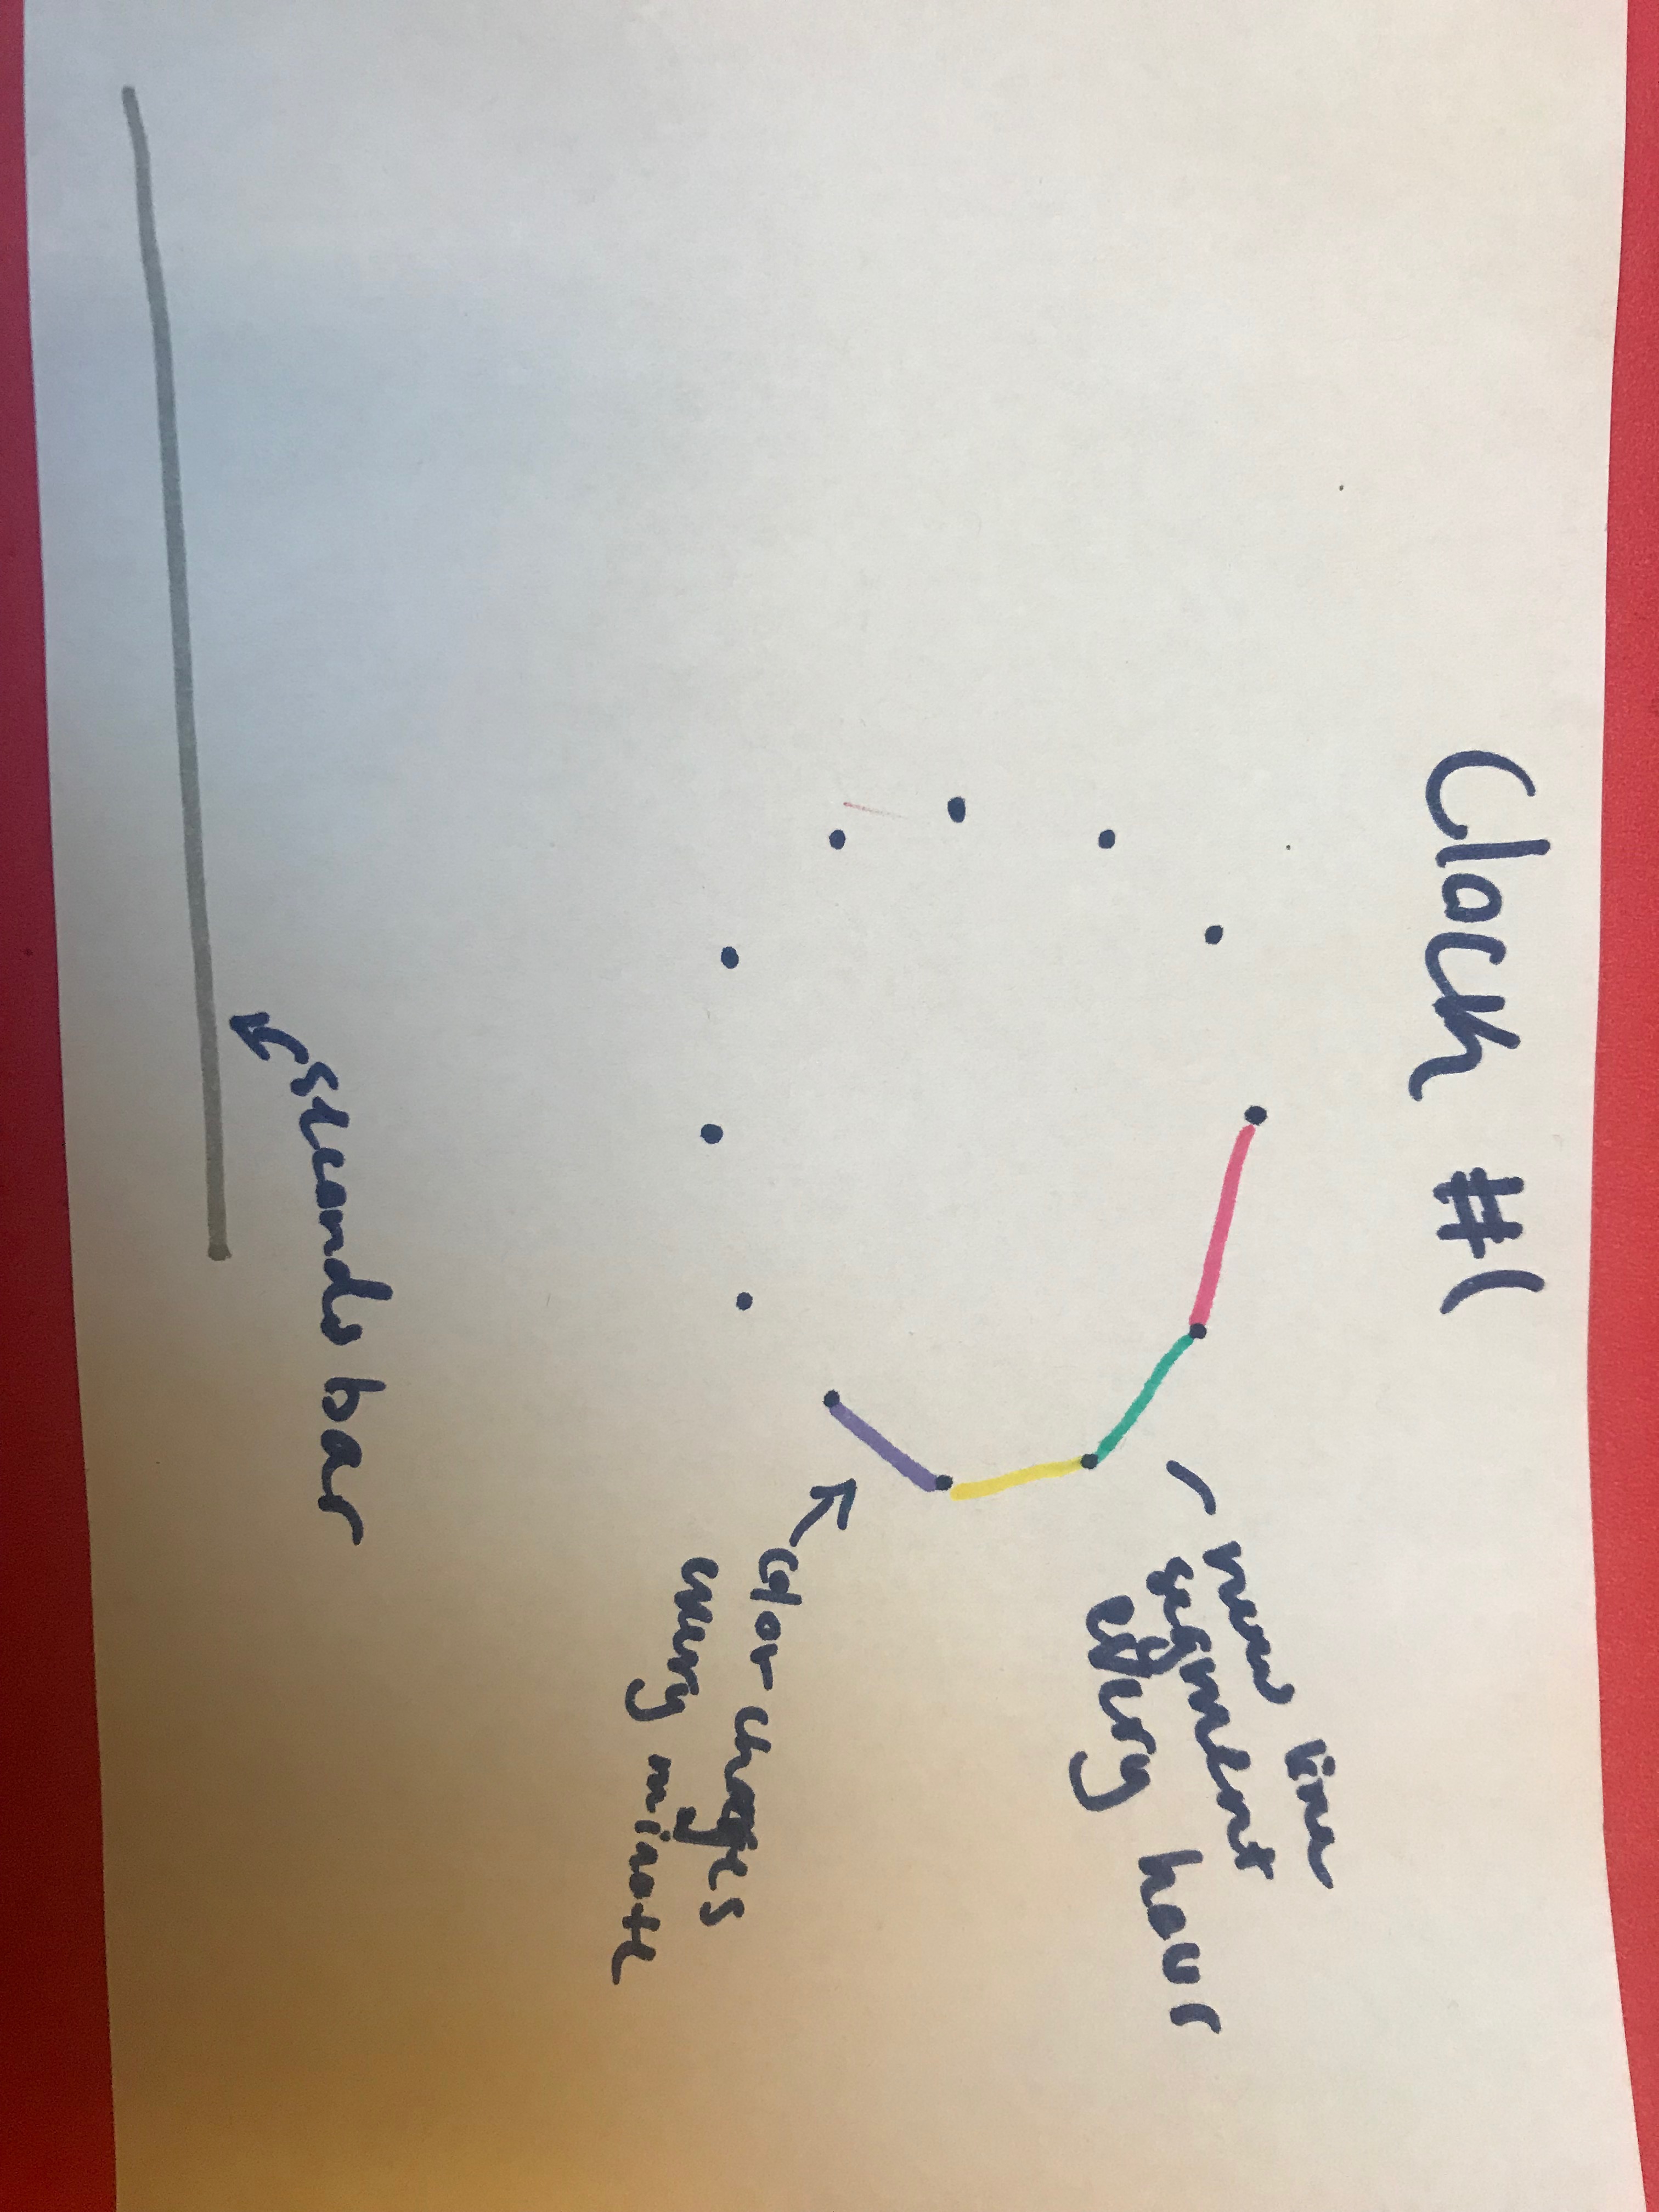 Clock #1
new line
segment
every hour
color changes
every minute
seconds bar